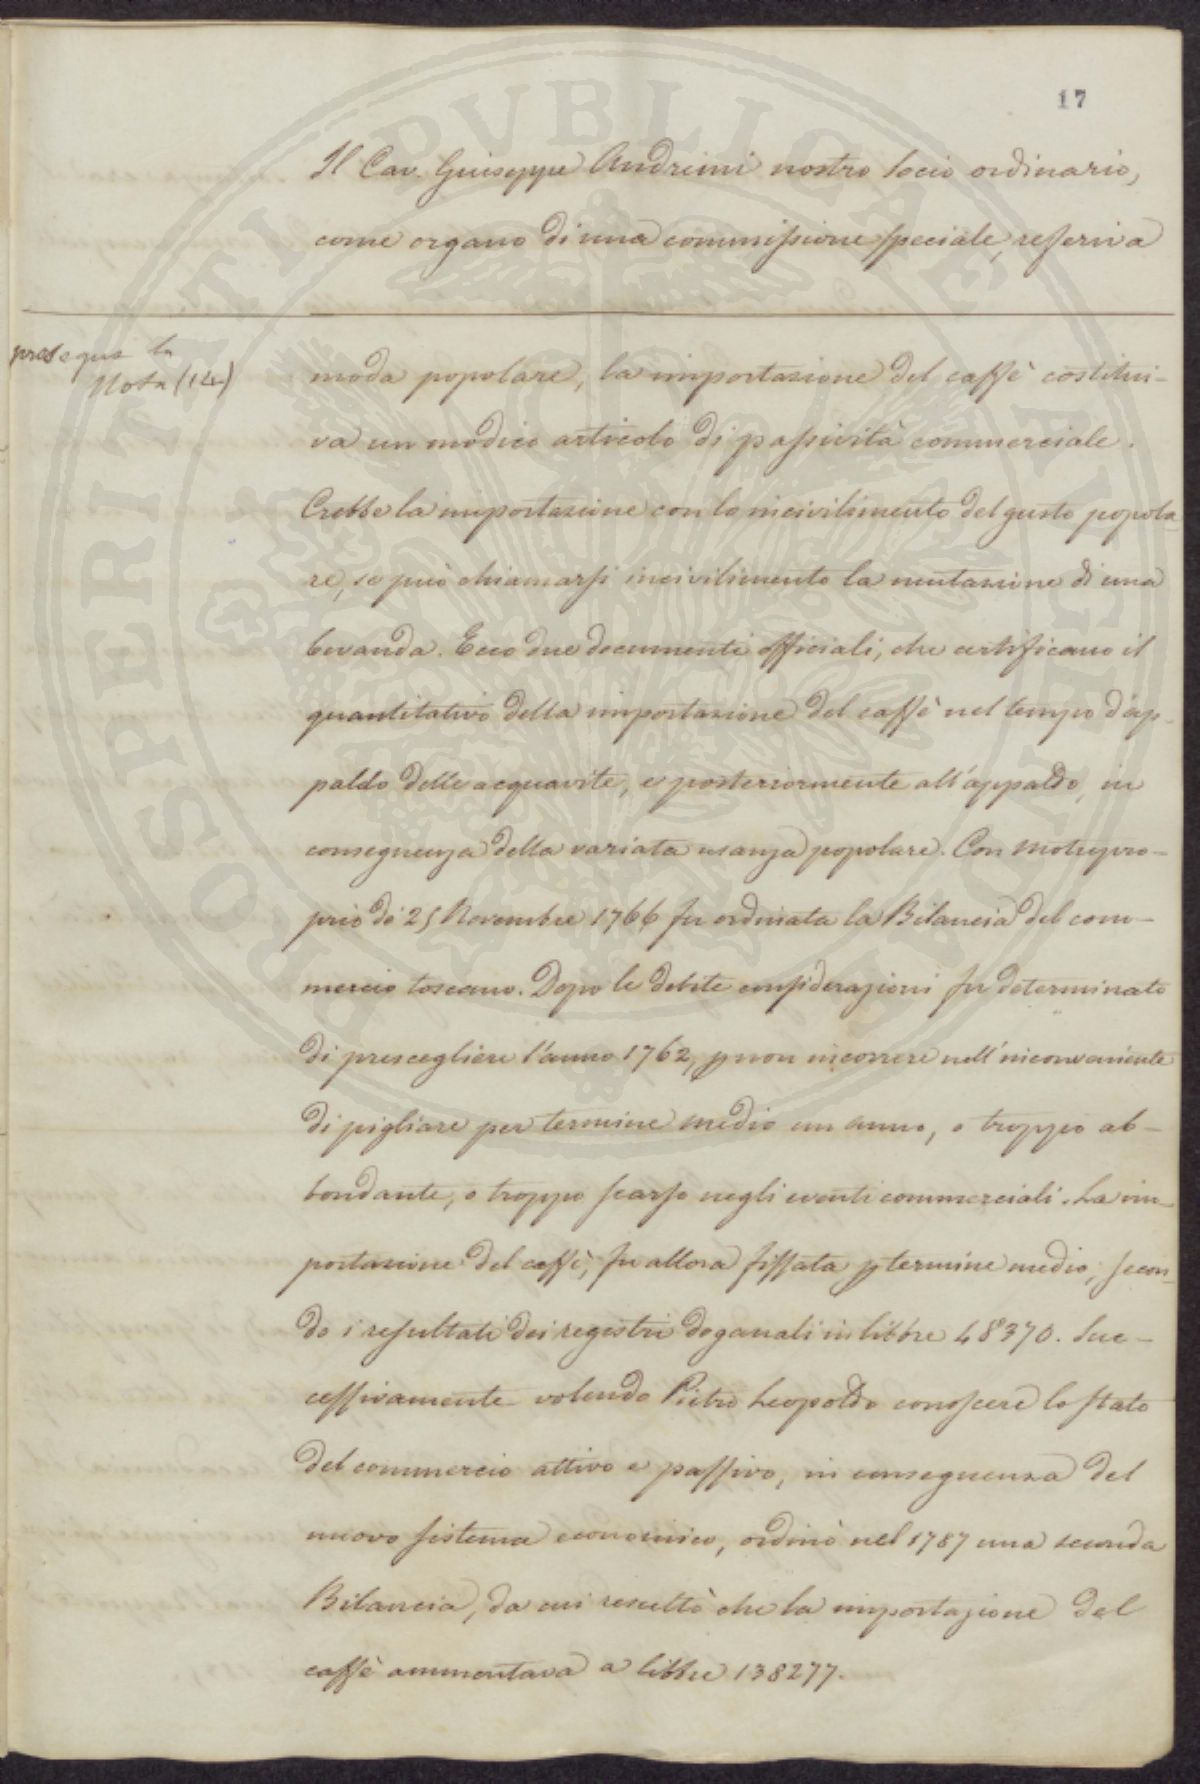 17
Il Cav. Giuseppe Andreini nostro Socio ordinario,
come organo di una commissione speciale, referiva
prosegue la
Nota (14)
moda popolare, la importazione del caffè costitui-
va un modico articolo di passività commerciale.
Crebbe la importazione con lo incivilimento del gusto popola-
re, se può chiamarsi incivilimento la mutazione di una
bevanda. Ecco due documenti officiali, che certificano il
quantitativo della importazione del caffè nel tempo d'ap-
palto delle acquavite, e posteriormente all'appalto, in
conseguenza della variata usanza popolare. Con Motupro-
prio de' 25 Novembre 1766 fu ordinata la Bilancia del com-
mercio toscano. Dopo le debite considerazioni fu determinato
di prescegliere l'anno 1762, p non incorrere nell'inconveniente
di pigliare per termine medio un anno, o troppo ab-
bondante, o troppo scarso negli eventi commerciali. La im-
portazione del caffè, fu allora fissata p termine medio, secon-
do i resultati dei registri doganali in libbre 48370. Suc-
cessivamente volendo Pietro Leopoldo conoscere lo stato
del commercio attivo e passivo, in conseguenza del
nuovo sistema economico, ordinò nel 1787 una seconda
Bilancia, da cui resultò che la importazione del
caffè ammontava a libbre 138277.
PROSPERITATI PVBLICAE